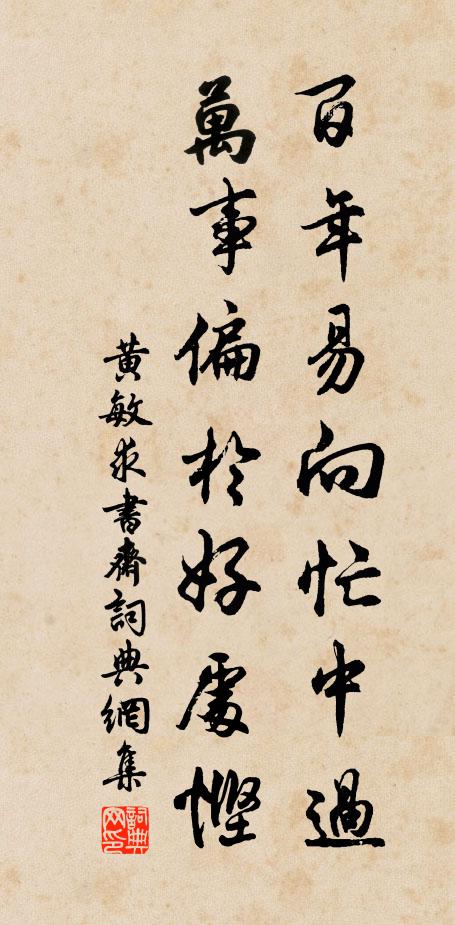 百年易向忙中過
萬事偏於好處慳
黃敏求書齋詞典網集
詞典网印